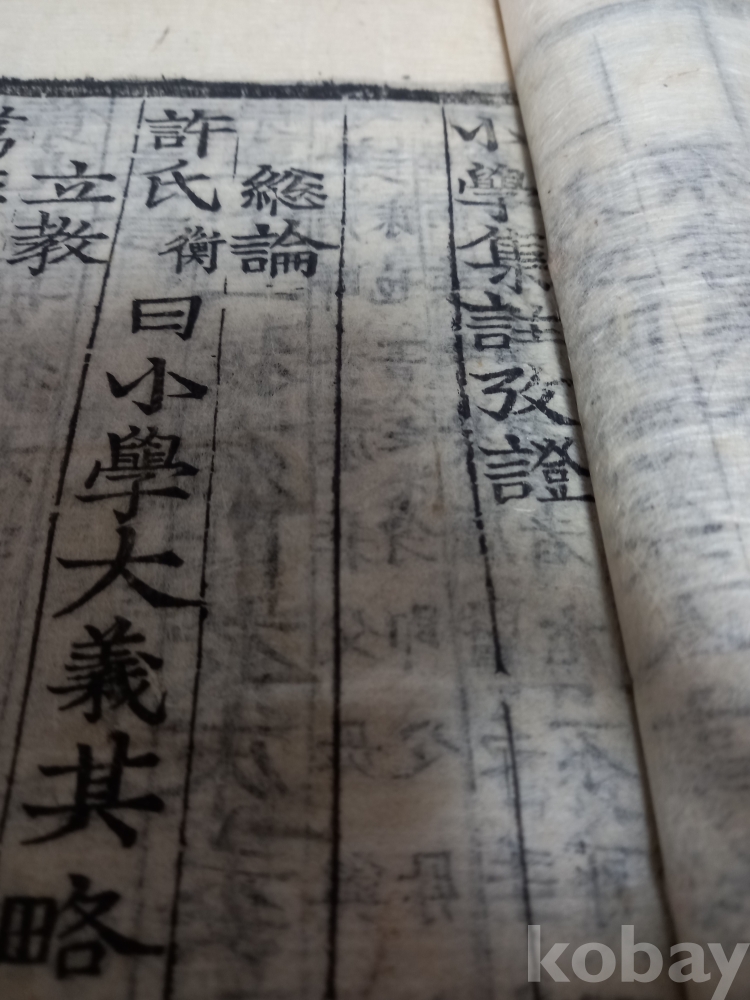 小學集註攷證
總論
許氏衡曰小學大義其略
立教
kobay